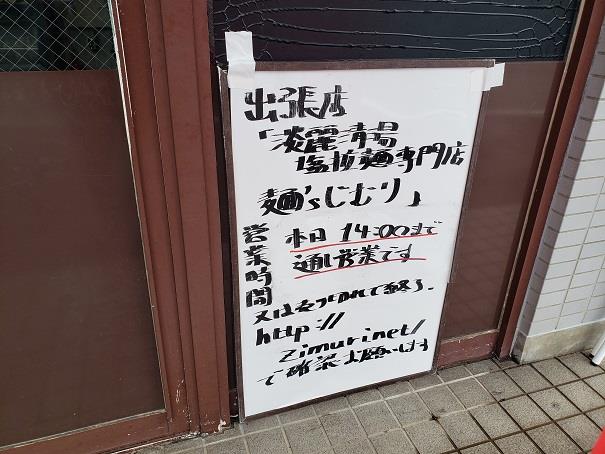 出張店
「淡麗清湯
塩拉麺専門店
麺'sじむり」
営業時間
本日 14:00まで
通し営業です
又は売り切れで終了.
http://
zimuri.net/
で確認お願いします